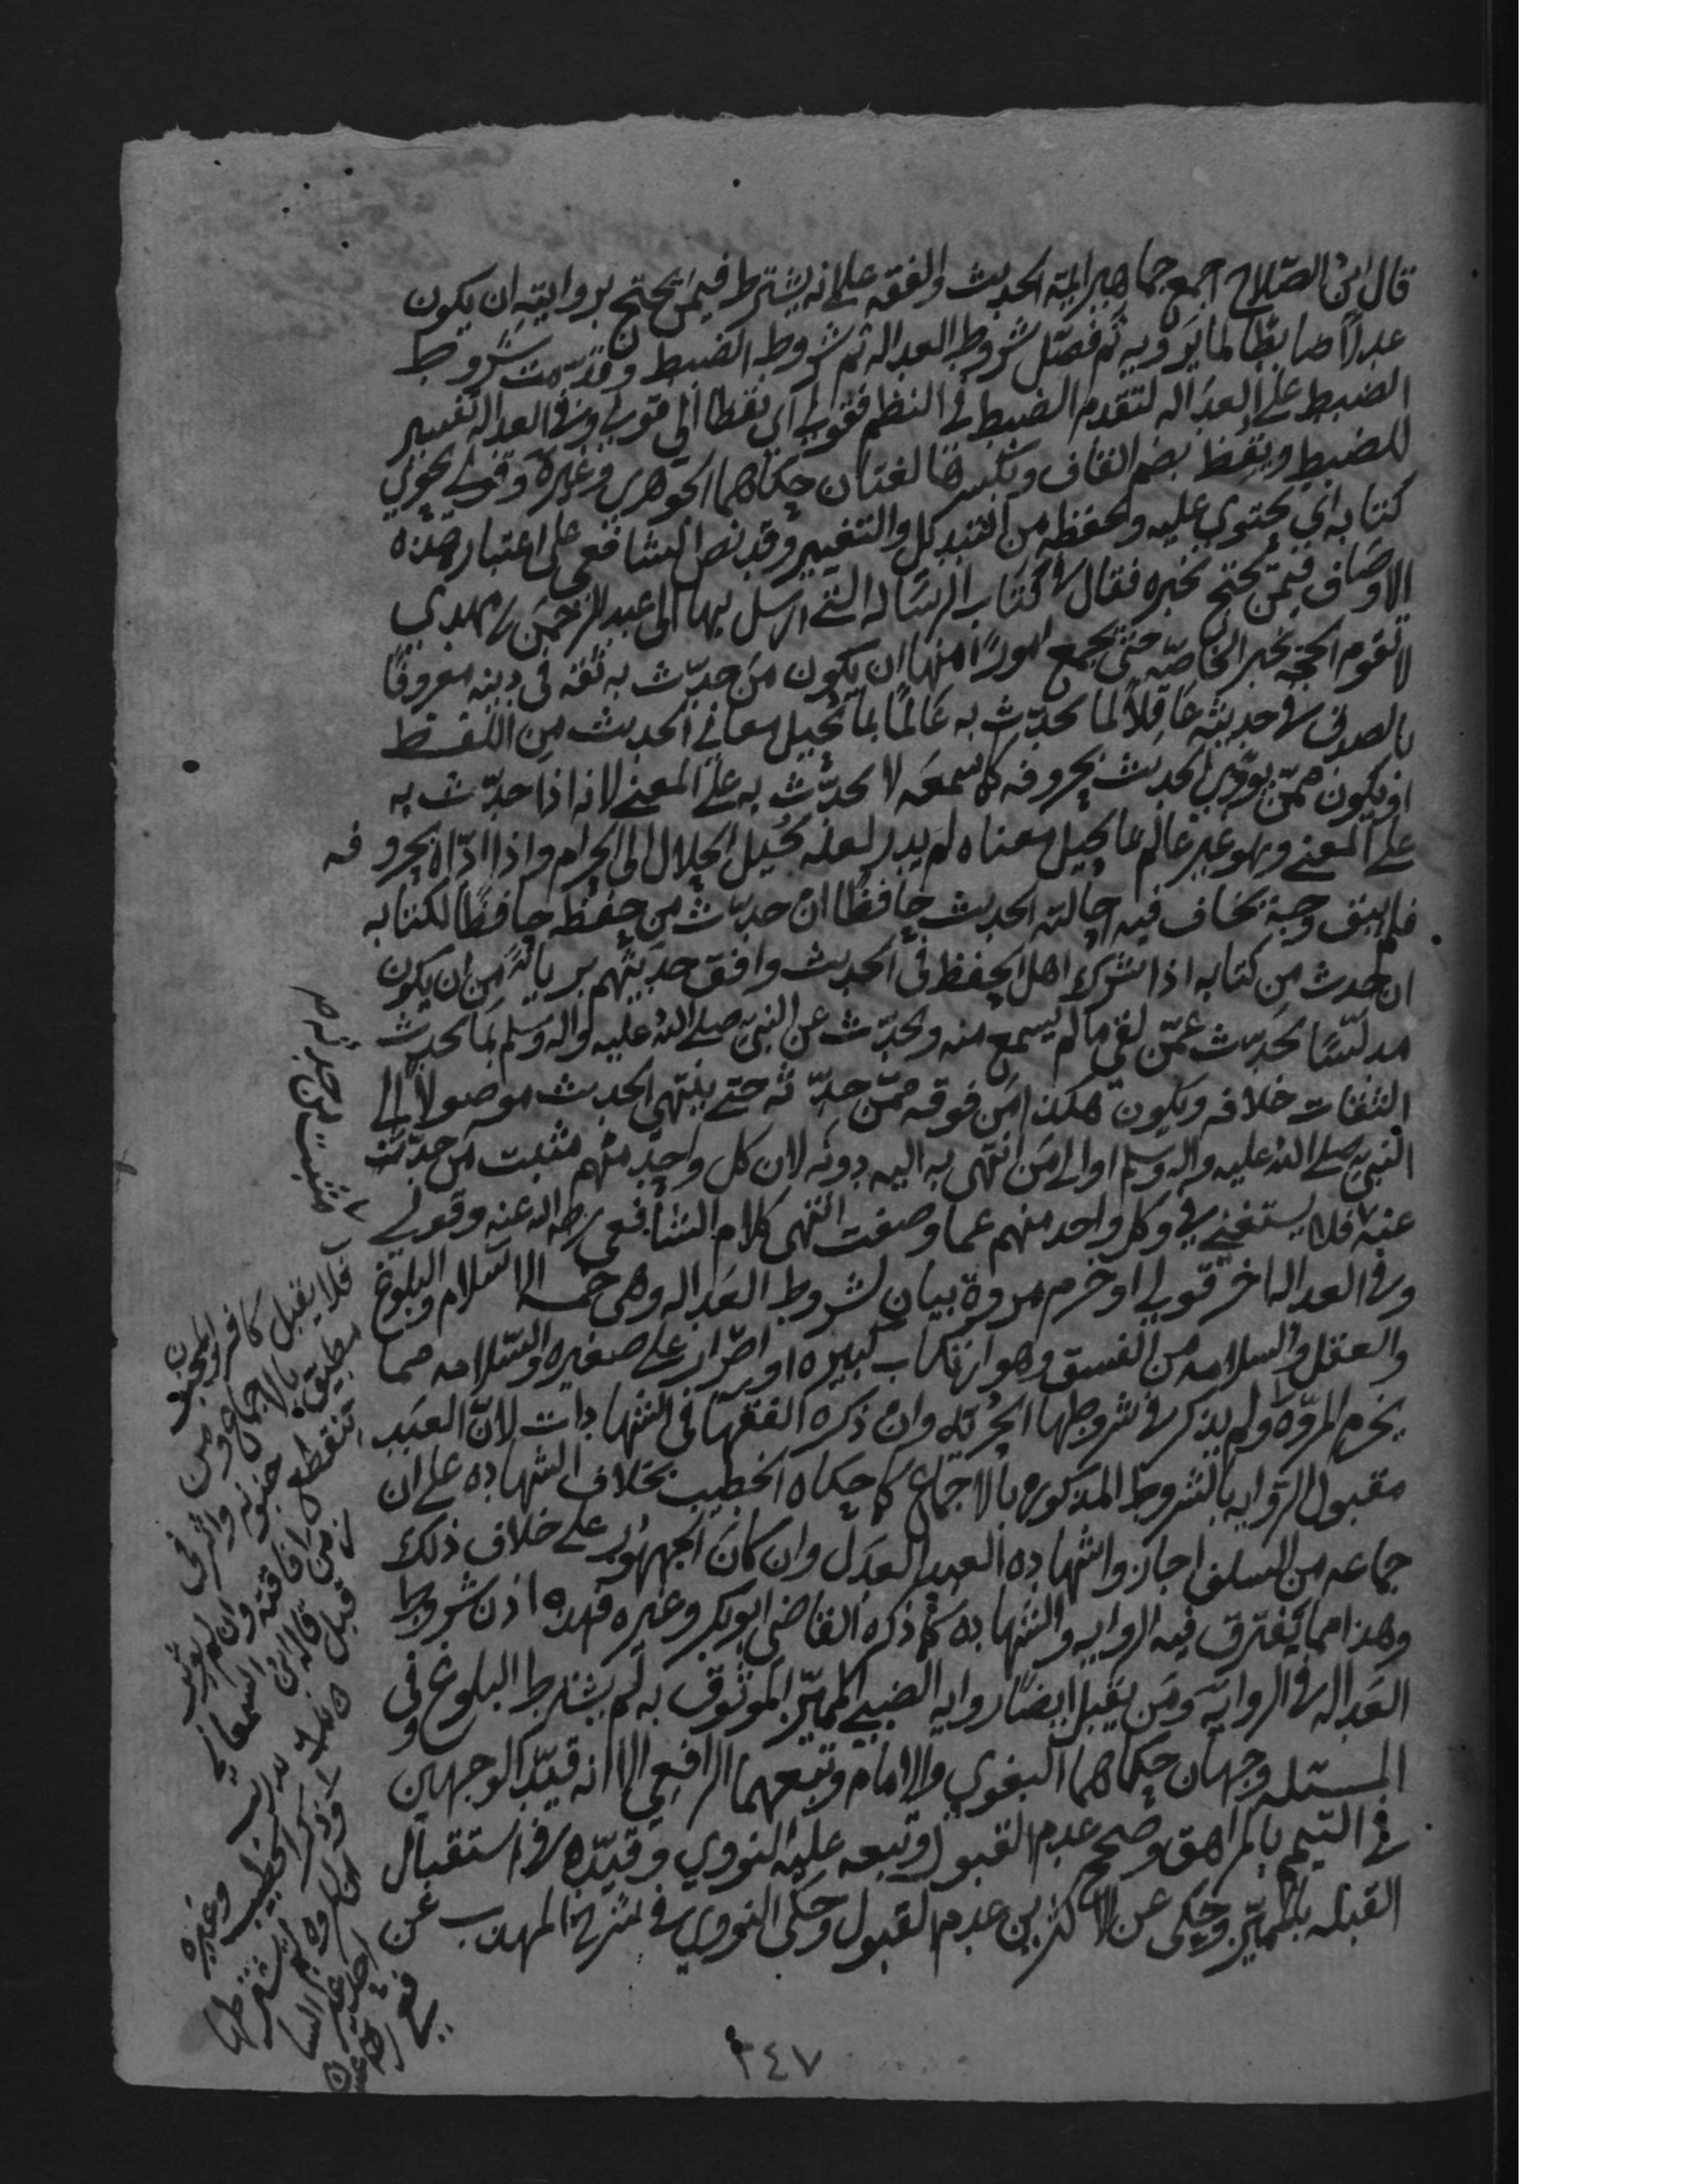 قال ابن الصّلاح اجمع جماهير ايمة الحديث والفقه على انه يشترط فيمن يحتج بروايته ان يكون
عدلاً ضابطًا لما يرويه ثم فصّل شروط العداله ثم شروط الضبط وقدّمت شروط
الضبط على العداله لتقدم الضبط في النظم فقولي اي يقظا الى قولي وفى العداله تفسير
للضبط ويقظ بضم القاف وبكسرها لغتان حكاهما الجوهري وغيره وقولي يحوي
كتابه اي يحتوي عليه ويحفظه من التبديل والتغيير وقد نص الشافعي على اعتبار هذه
الاوصاف فيمن يحتج بخبره فقال في كتاب الرساله التي ارسل بها الى عبد الرحمن بن مهدي
لا تقوم الحجه بخبر الخاصّه حتى يجمع امورًا منها ان يكون من حدّث به ثقه في دينه معروفًا
بالصدق في حديثه عاقلاً لما يحدّث به عالمًا بما يحيل معاني الحديث من اللفظ
او يكون ممّن يودّي الحديث بحروفه كما سمعه لا يحدّث به على المعنى لانه اذا حدّث به
على المعنى وهو غير عالم بما يحيل معناه لم يدر لعله يحيل الحلال الى الحرام واذا ادّاه بحروفه
فلم يبق وجه يخاف فيه احالته الحديث حافظًا ان حدّث من حفظه حافظًا لكتابه
ان حدث من كتابه اذا شرك اهل الحفظ في الحديث وافق حديثهم بريا من ان يكون
مدلّسًا يحدّث عمّن لقى ما لم يسمع منه ويحدّث عن النبي صلى الله عليه واله وسلم بما يحدث
الثقات خلافه ويكون هكذا من فوقه ممّن حدّثه حتى ينتهي الحديث موصولاً الى
النبي صلى الله عليه واله وسلم او الى من انتهى به اليه دونه لان كل واحد منهم مثبت من حدّثه
عنه فلا يستغني في كل واحد منهم عما وصفت انتهى كلام الشافعي رضي الله عنه وقولي
وفى العداله اخر قولي او خرم مروة بيان لشروط العداله وهي خمسه الاسلام والبلوغ
والعقل والسلامه من الفسق وهو ارتكاب كبيره او اصرار على صغيره والسّلامه مما
يخرم المروّه ولم يذكر في شروطها الحرّيه وان ذكره الفقها في الشهادات لانّ العبد
مقبول الروايه بالشروط المذكوره بالاجماع كما حكاه الخطيب بخلاف الشهاده على ان
جماعه من السلف اجازوا شهاده العبد العدل وان كان الجمهور على خلاف ذلك
وهذا مما يفترق فيه الروايه والشهاده كما ذكره القاضي ابو بكر وغيره فهذه اذن شروط
العداله في الروايه ومن يقبل ايضًا روايه الصبي المميّز الموثوق به لم يشترط البلوغ وفي
المسئله وجهان حكاهما البغوي والامام وتبعهما الرافعي الا انه قيّد الوجهين
في التيمم بالمراهق وصحح عدم القبول وتبعه عليه النووي وقيّده في استقبال
القبله بالمميّز وحكى عن الاكثرين عدم القبول وحكى النووي في شرح المهذب عن
ومثبت لمن حدث عنه
فلا يقبل كافر ومجنون
مطبق بالاجماع ومن
تقطع جنونه واثر في
زمن افاقته وان لم يوثر
قبل قاله ابن السمعاني
وذكر الخطيب وغيره
٣٤٧